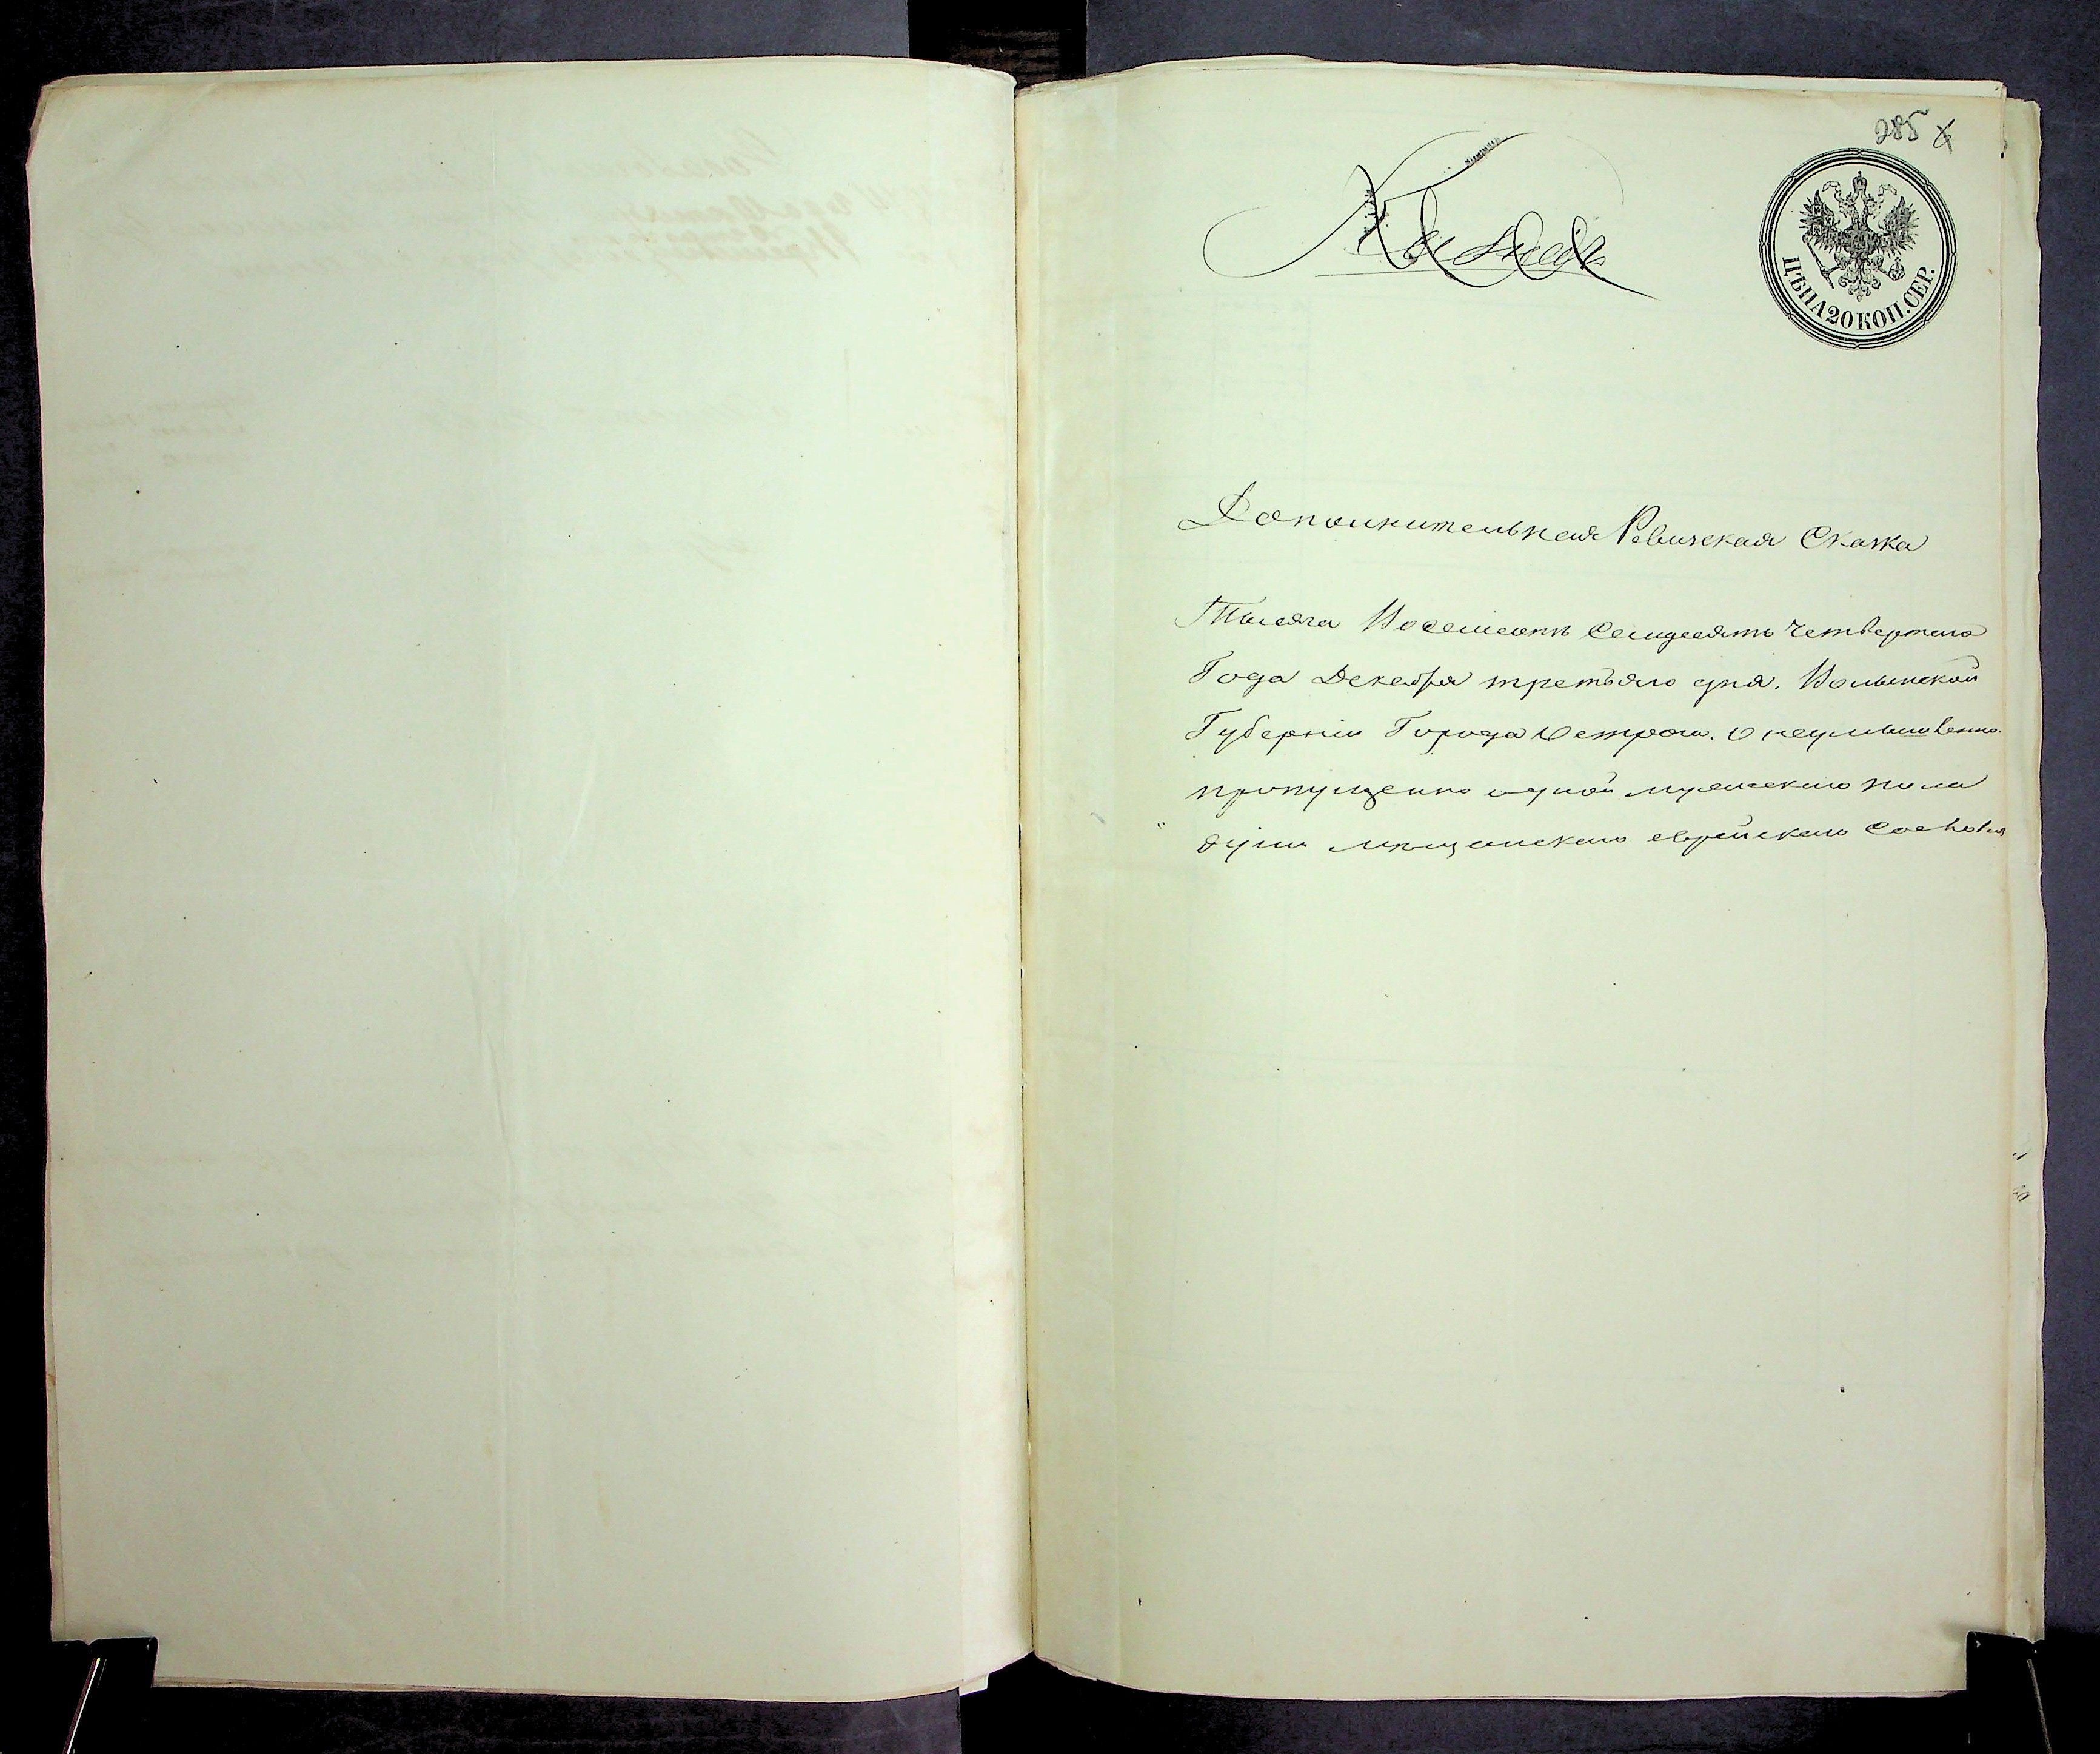 285
ЦѢНА 20 КОП. СЕР.
Дополнительная Ревизская Сказка
Тысяча Восемсотъ Семдесятъ Четвертаго
Года Декабря третьяго дня. Волынской
Губерніи Города Острога. О неумышленно
пропущенно одной мужескаго пола
души мѣщанскаго еврейскаго Сословія